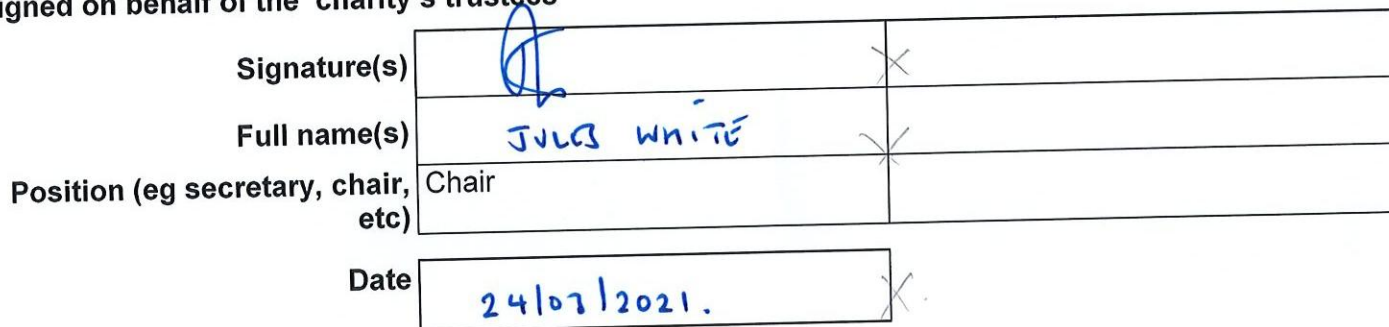 igned on behalf of the charity's trustees
Signature(s)
Full name(s) JULES WHITE
Position (eg secretary, chair, Chair
etc)
Date 24/03/2021.